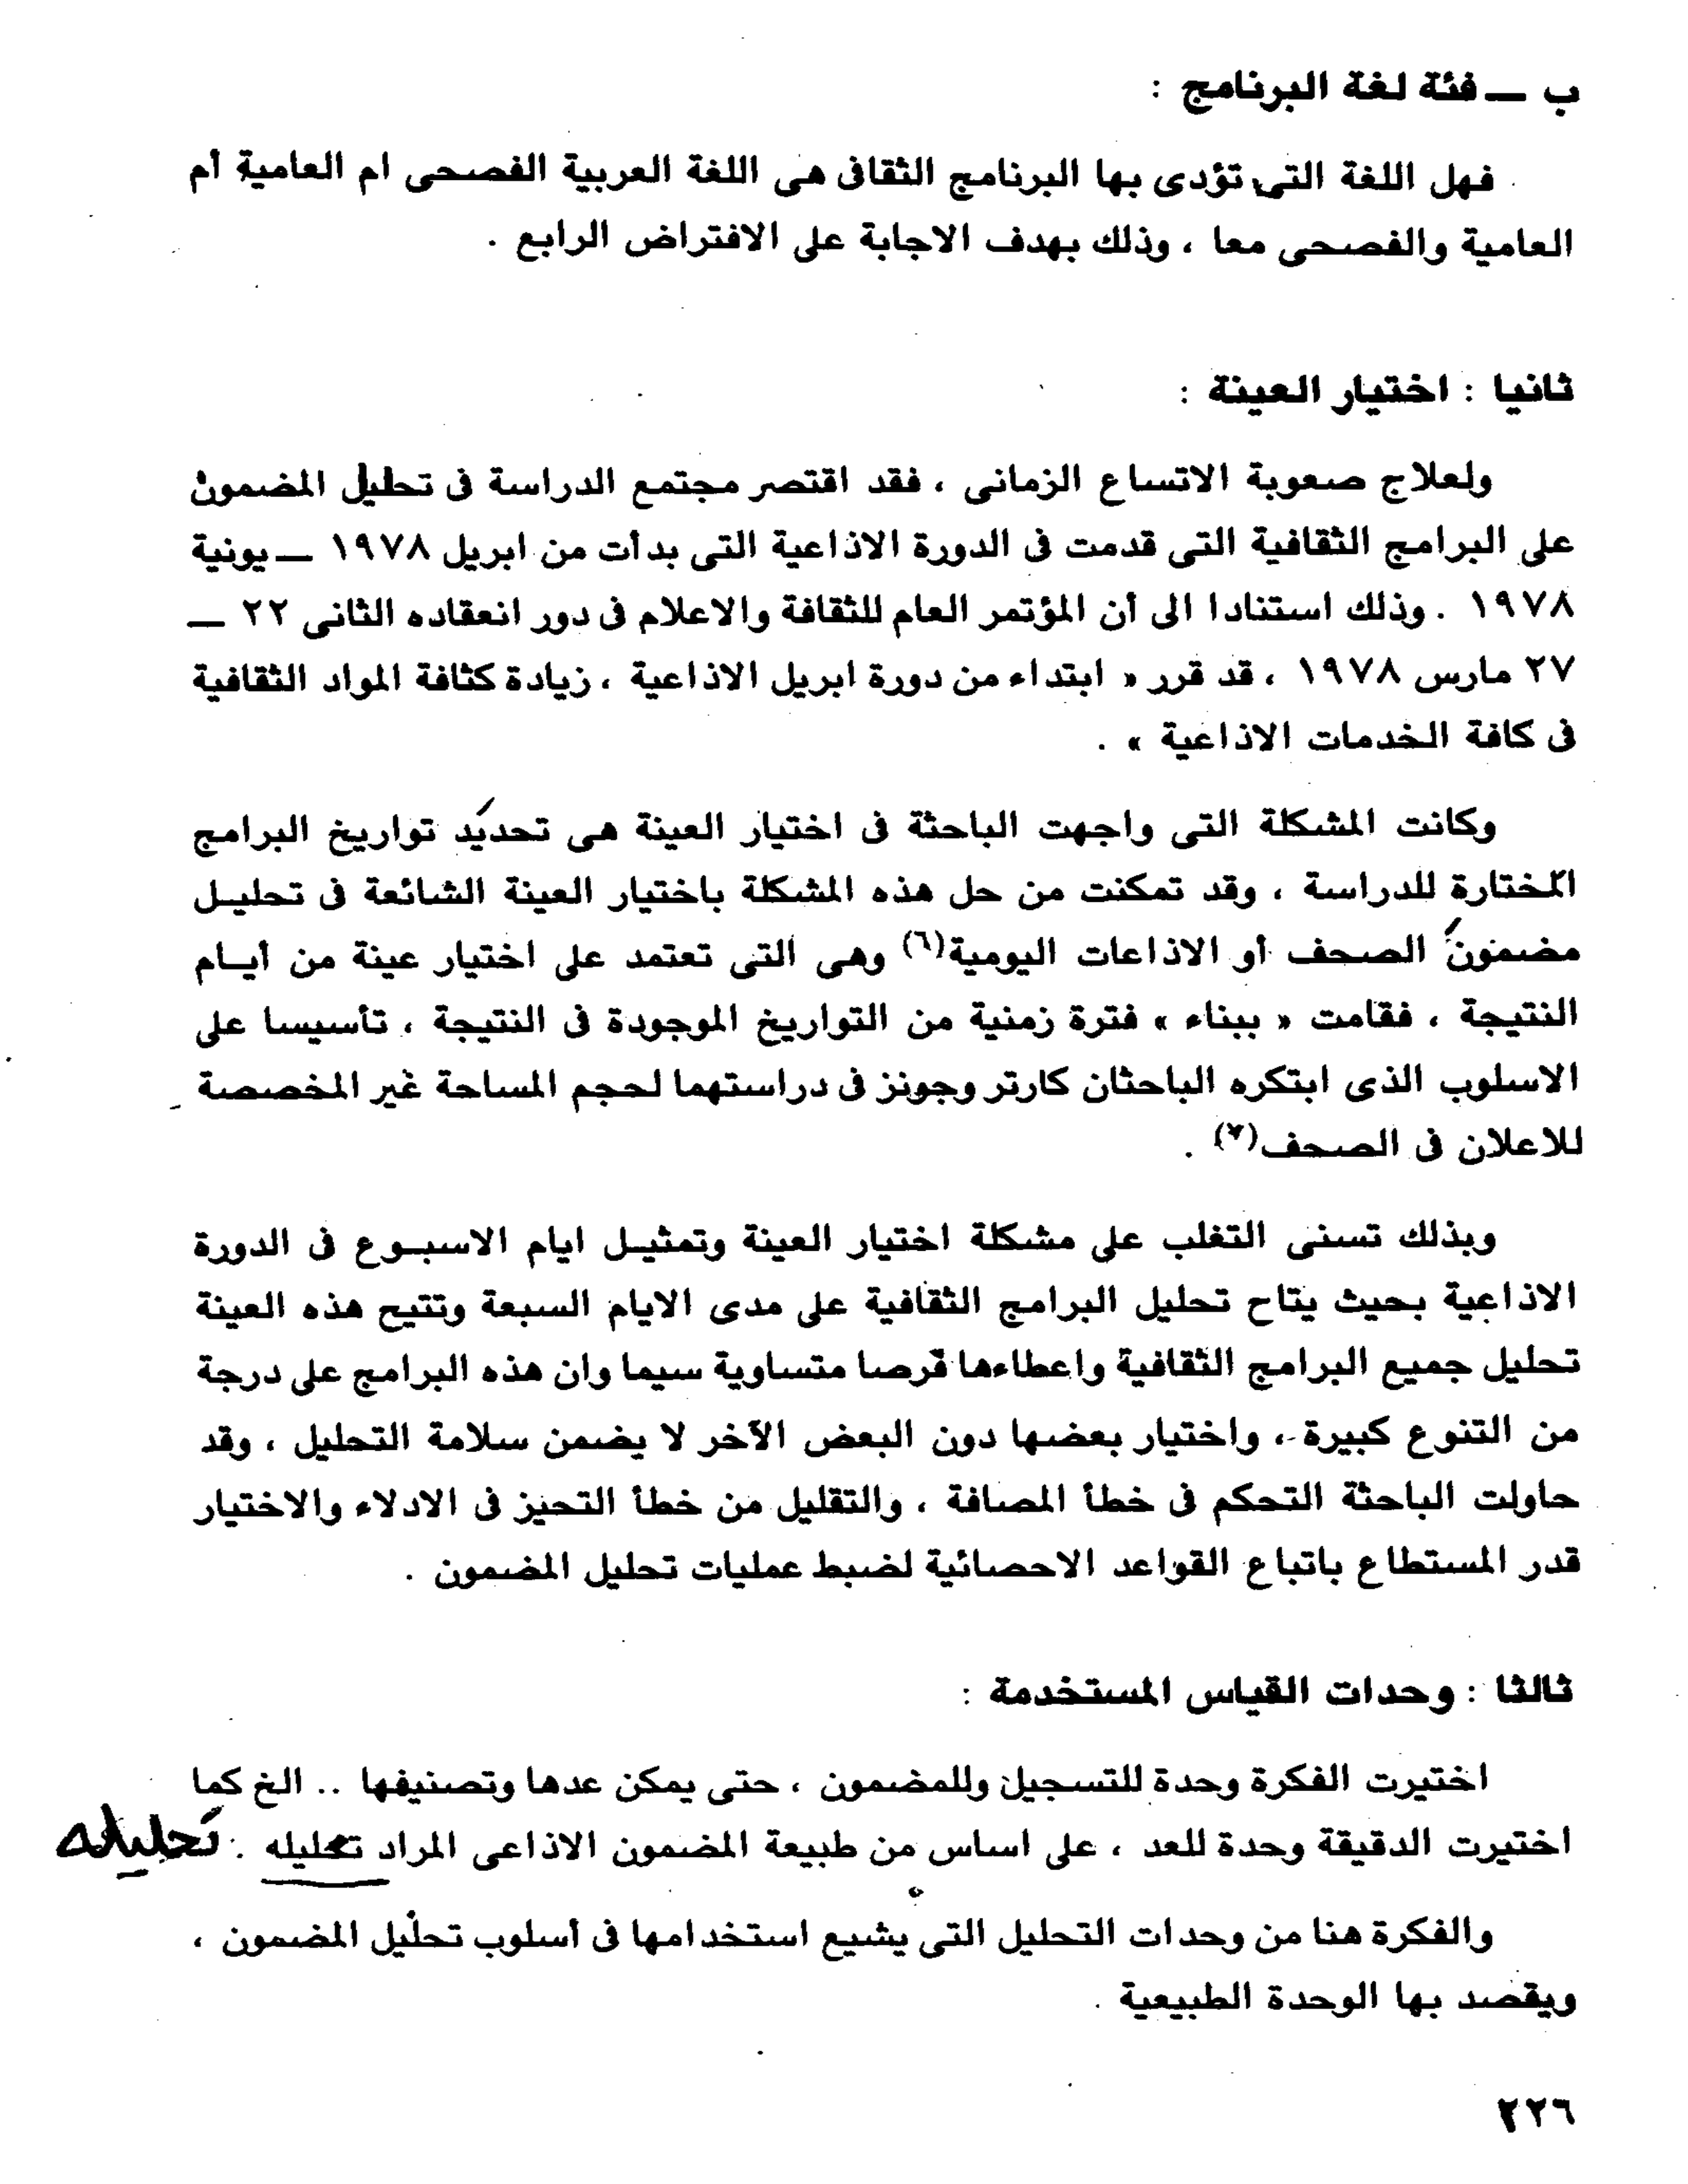 ب — فئة لغة البرنامج :
فهل اللغة التى تؤدى بها البرنامج الثقافى هى اللغة العربية الفصحى ام العامية أم
العامية والفصحى معا ، وذلك بهدف الاجابة على الافتراض الرابع .
ثانيا : اختيار العينة :
ولعلاج صعوبة الاتساع الزمانى ، فقد اقتصر مجتمع الدراسة فى تحليل المضمون
على البرامج الثقافية التى قدمت فى الدورة الاذاعية التى بدأت من ابريل ١٩٧٨ — يونية
١٩٧٨ . وذلك استنادا الى أن المؤتمر العام للثقافة والاعلام فى دور انعقاده الثانى ٢٢ —
٢٧ مارس ١٩٧٨ ، قد قرر « ابتداء من دورة ابريل الاذاعية ، زيادة كثافة المواد الثقافية
فى كافة الخدمات الاذاعية » .
وكانت المشكلة التى واجهت الباحثة فى اختيار العينة هى تحديد تواريخ البرامج
المختارة للدراسة ، وقد تمكنت من حل هذه المشكلة باختيار العينة الشائعة فى تحليل
مضمون الصحف أو الاذاعات اليومية(٦) وهى التى تعتمد على اختيار عينة من أيام
النتيجة ، فقامت « ببناء » فترة زمنية من التواريخ الموجودة فى النتيجة ، تأسيسا على
الاسلوب الذى ابتكره الباحثان كارتر وجونز فى دراستهما لحجم المساحة غير المخصصة
للاعلان فى الصحف(٧) .
وبذلك تسنى التغلب على مشكلة اختيار العينة وتمثيل ايام الاسبوع فى الدورة
الاذاعية بحيث يتاح تحليل البرامج الثقافية على مدى الايام السبعة وتتيح هذه العينة
تحليل جميع البرامج الثقافية واعطاءها فرصا متساوية سيما وان هذه البرامج على درجة
من التنوع كبيرة ، واختيار بعضها دون البعض الآخر لا يضمن سلامة التحليل ، وقد
حاولت الباحثة التحكم فى خطأ المصافة ، والتقليل من خطأ التحيز فى الادلاء والاختيار
قدر المستطاع باتباع القواعد الاحصائية لضبط عمليات تحليل المضمون .
ثالثا : وحدات القياس المستخدمة :
اختيرت الفكرة وحدة للتسجيل وللمضمون ، حتى يمكن عدها وتصنيفها .. الخ كما
اختيرت الدقيقة وحدة للعد ، على اساس من طبيعة المضمون الاذاعى المراد تحليله . تحليله
والفكرة هنا من وحدات التحليل التى يشيع استخدامها فى أسلوب تحليل المضمون ،
ويقصد بها الوحدة الطبيعية .
٢٢٦